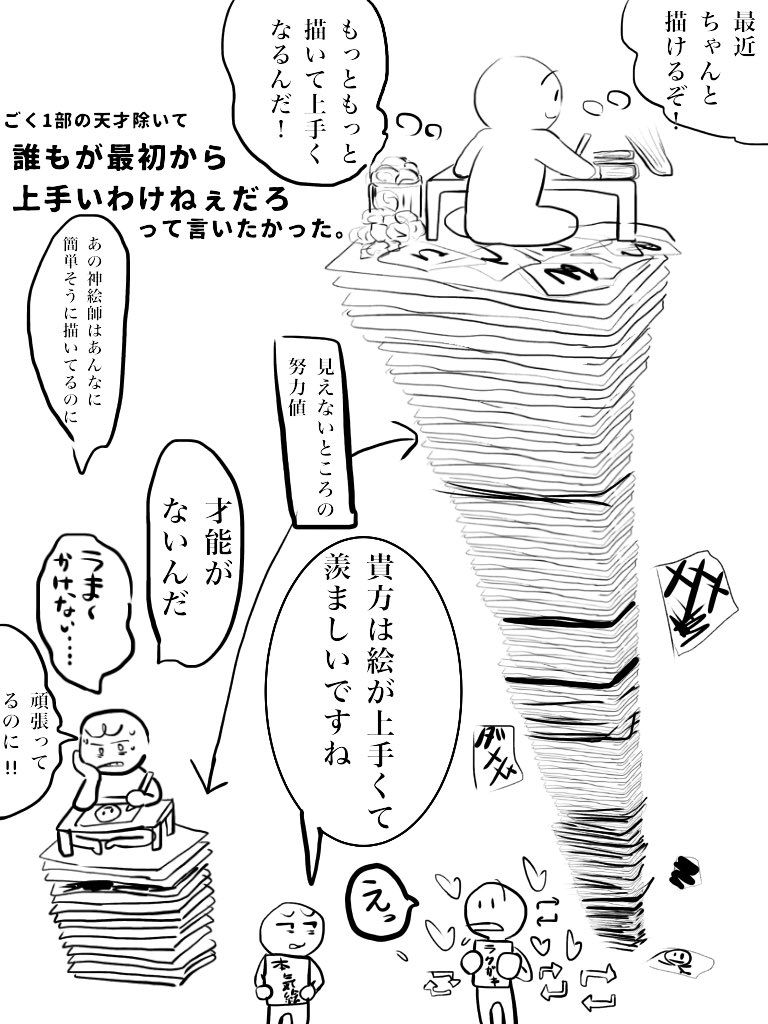 最近
ちゃんと
描けるぞ！
もっともっと
描いて上手く
なるんだ！
ごく1部の天才除いて
誰もが最初から
上手いわけねぇだろ
って言いたかった。
あの神絵師はあんなに
簡単そうに描いてるのに
見えないところの
努力値
才能が
ないんだ
うま〜
かけない…
頑張って
るのに!!
貴方は絵が上手くて
羨ましいですね
えっ
本気絵
ラクガキ
ダメ